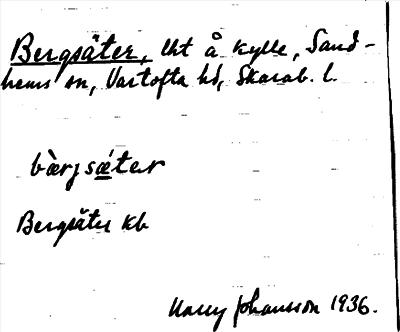 Bergsäter, lht å Kylle, Sand-
hems sn, Vartofta hd, Skarab. l.
bæ̀rjsǽter
Bergsäter kb
Harry Johansson 1936.